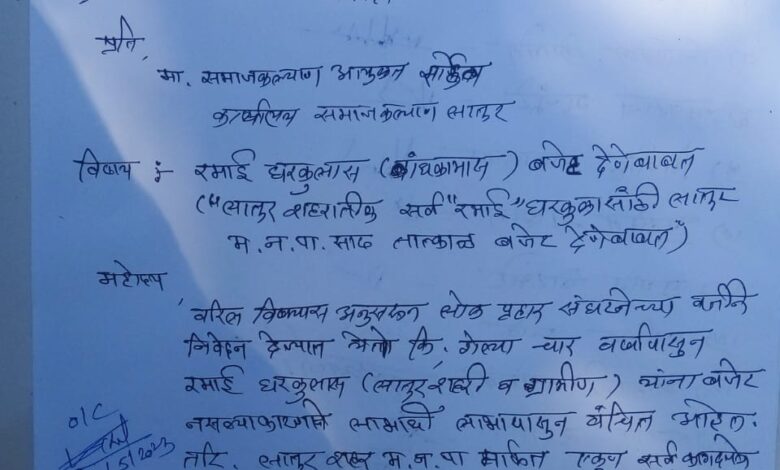 प्रति,
मा. समाजकल्याण आयुक्त साहेब
कार्यालय समाजकल्याण लातुर
विषय :- रमाई घरकुलास (बांधकामास) बजेट देणेबाबत
("लातुर शहरातील सर्व "रमाई" घरकुलासाठी लातुर
म.न.पा. साठ तात्काळ बजेट देणेबाबत")
महोदय,
वरिल विषयास अनुसरून लोक प्रहार संघटनेच्या वतीने
निवेदन देण्यात येतो कि, गेल्या चार वर्षापासुन
रमाई घरकुलास (लातुर शहरी व ग्रामीण) यांना बजेट
नसल्याकारणाने लाभार्थी लाभापासुन वंचित आहेत.
तरि. लातुर शहर म.न.पा मार्फत एकुण सर्व
O/C
/5/2023